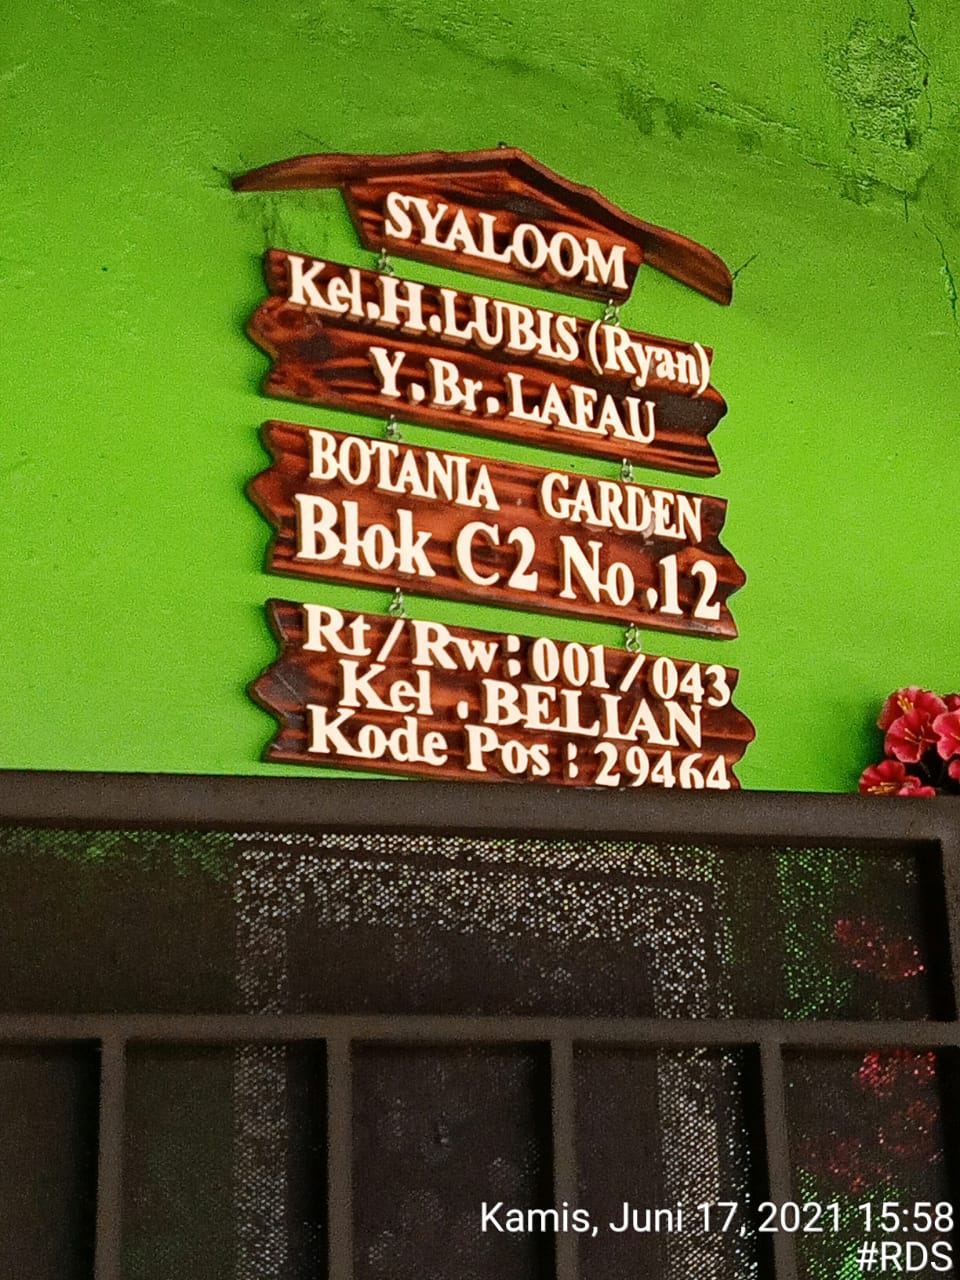 SYALOOM
Kel.H.LUBIS (Ryan)
Y.Br.LAFAU
BOTANIA GARDEN
Blok C2 No.12
Rt/Rw:001/043
Kel.BELIAN
Kode Pos:29464
Kamis, Juni 17, 2021 15:58
#RDS